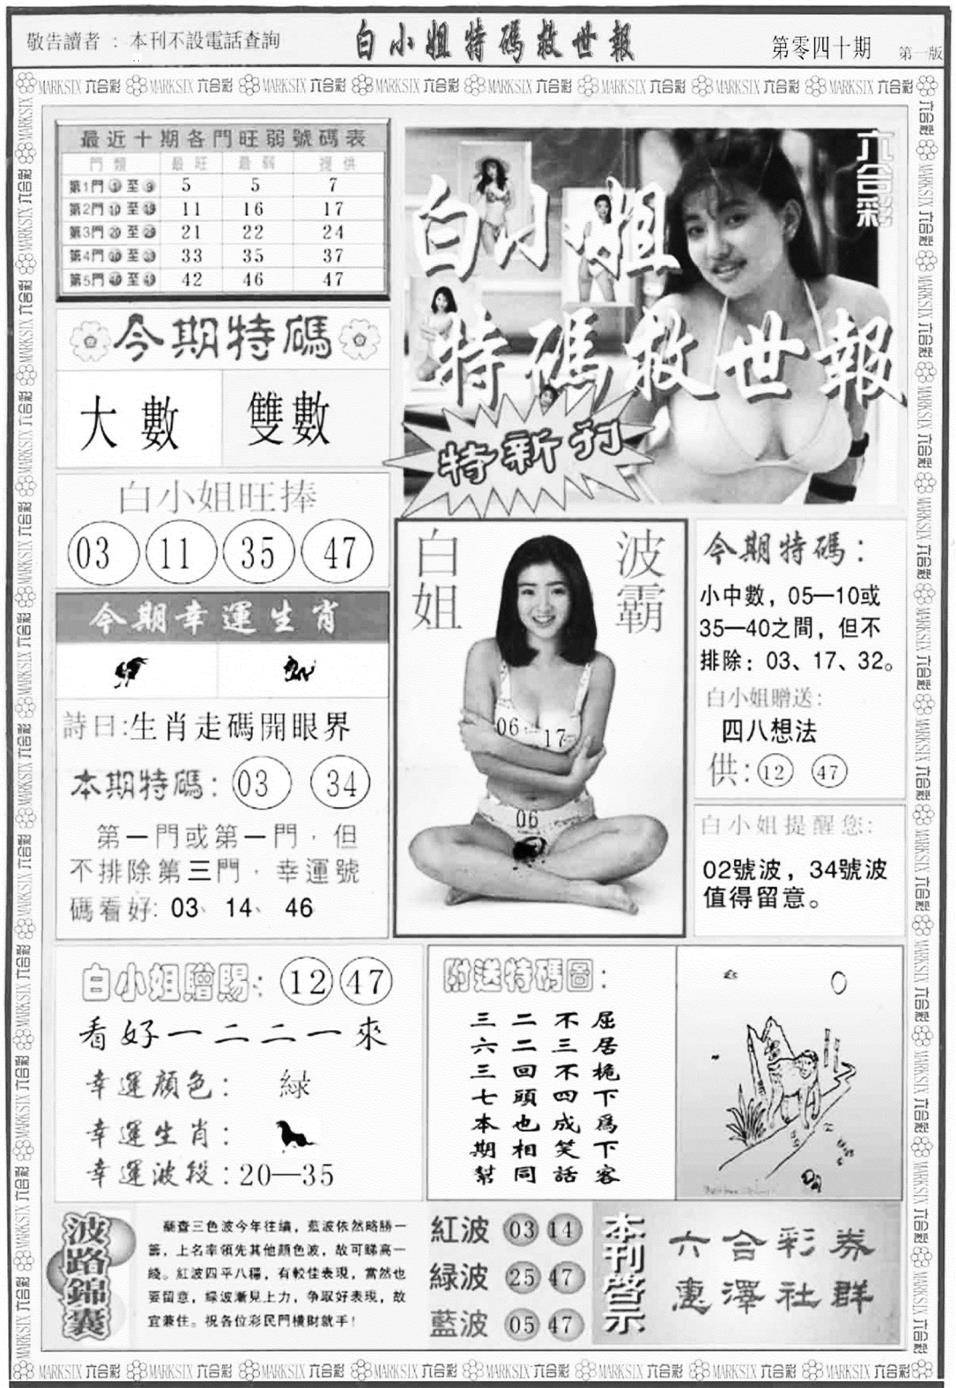 敬告讀者：本刊不設電話查詢
白小姐特碼救世報
第零四十期
第一版
MARKSIX 六合彩
最近十期各門旺弱號碼表
門類 最旺 最弱 提供
第1門 ① 至 ⑨ 5 5 7
第2門 ⑩ 至 ⑲ 11 16 17
第3門 ⑳ 至 ㉙ 21 22 24
第4門 ㉚ 至 ㊴ 33 35 37
第5門 ㊵ 至 ㊾ 42 46 47
今期特碼
大數 雙數
白小姐旺捧
03 11 35 47
今期幸運生肖
詩曰:生肖走碼開眼界
本期特碼: 03 34
第一門或第一門，但
不排除第三門，幸運號
碼看好: 03、14、46
六合彩
白小姐
特碼救世報
特新刊
白姐
波霸
06 17
06
今期特碼：
小中數，05—10或
35—40之間，但不
排除：03、17、32。
白小姐贈送:
四八想法
供: 12 47
白小姐提醒您:
02號波，34號波
值得留意。
白小姐贈賜: 12 47
看好一二二一來
幸運顏色： 緑
幸運生肖：
幸運波段:20—35
附送特碼圖：
三二不屈
六二三居
三回不桅
七頭四下
本也成為
期相笑下
幫同話客
波路錦囊
藥查三色波今年往績，藍波依然略勝一
籌，上名率領先其他顏色波，故可睇高一
綫。紅波四平八穩，有較佳表現，當然也
要留意，綠波漸見上力，争取好表現，故
宜兼住。祝各位彩民門橫財就手！
紅波 03 14
緑波 25 47
藍波 05 47
本刊啓示
六合彩券
惠澤社群